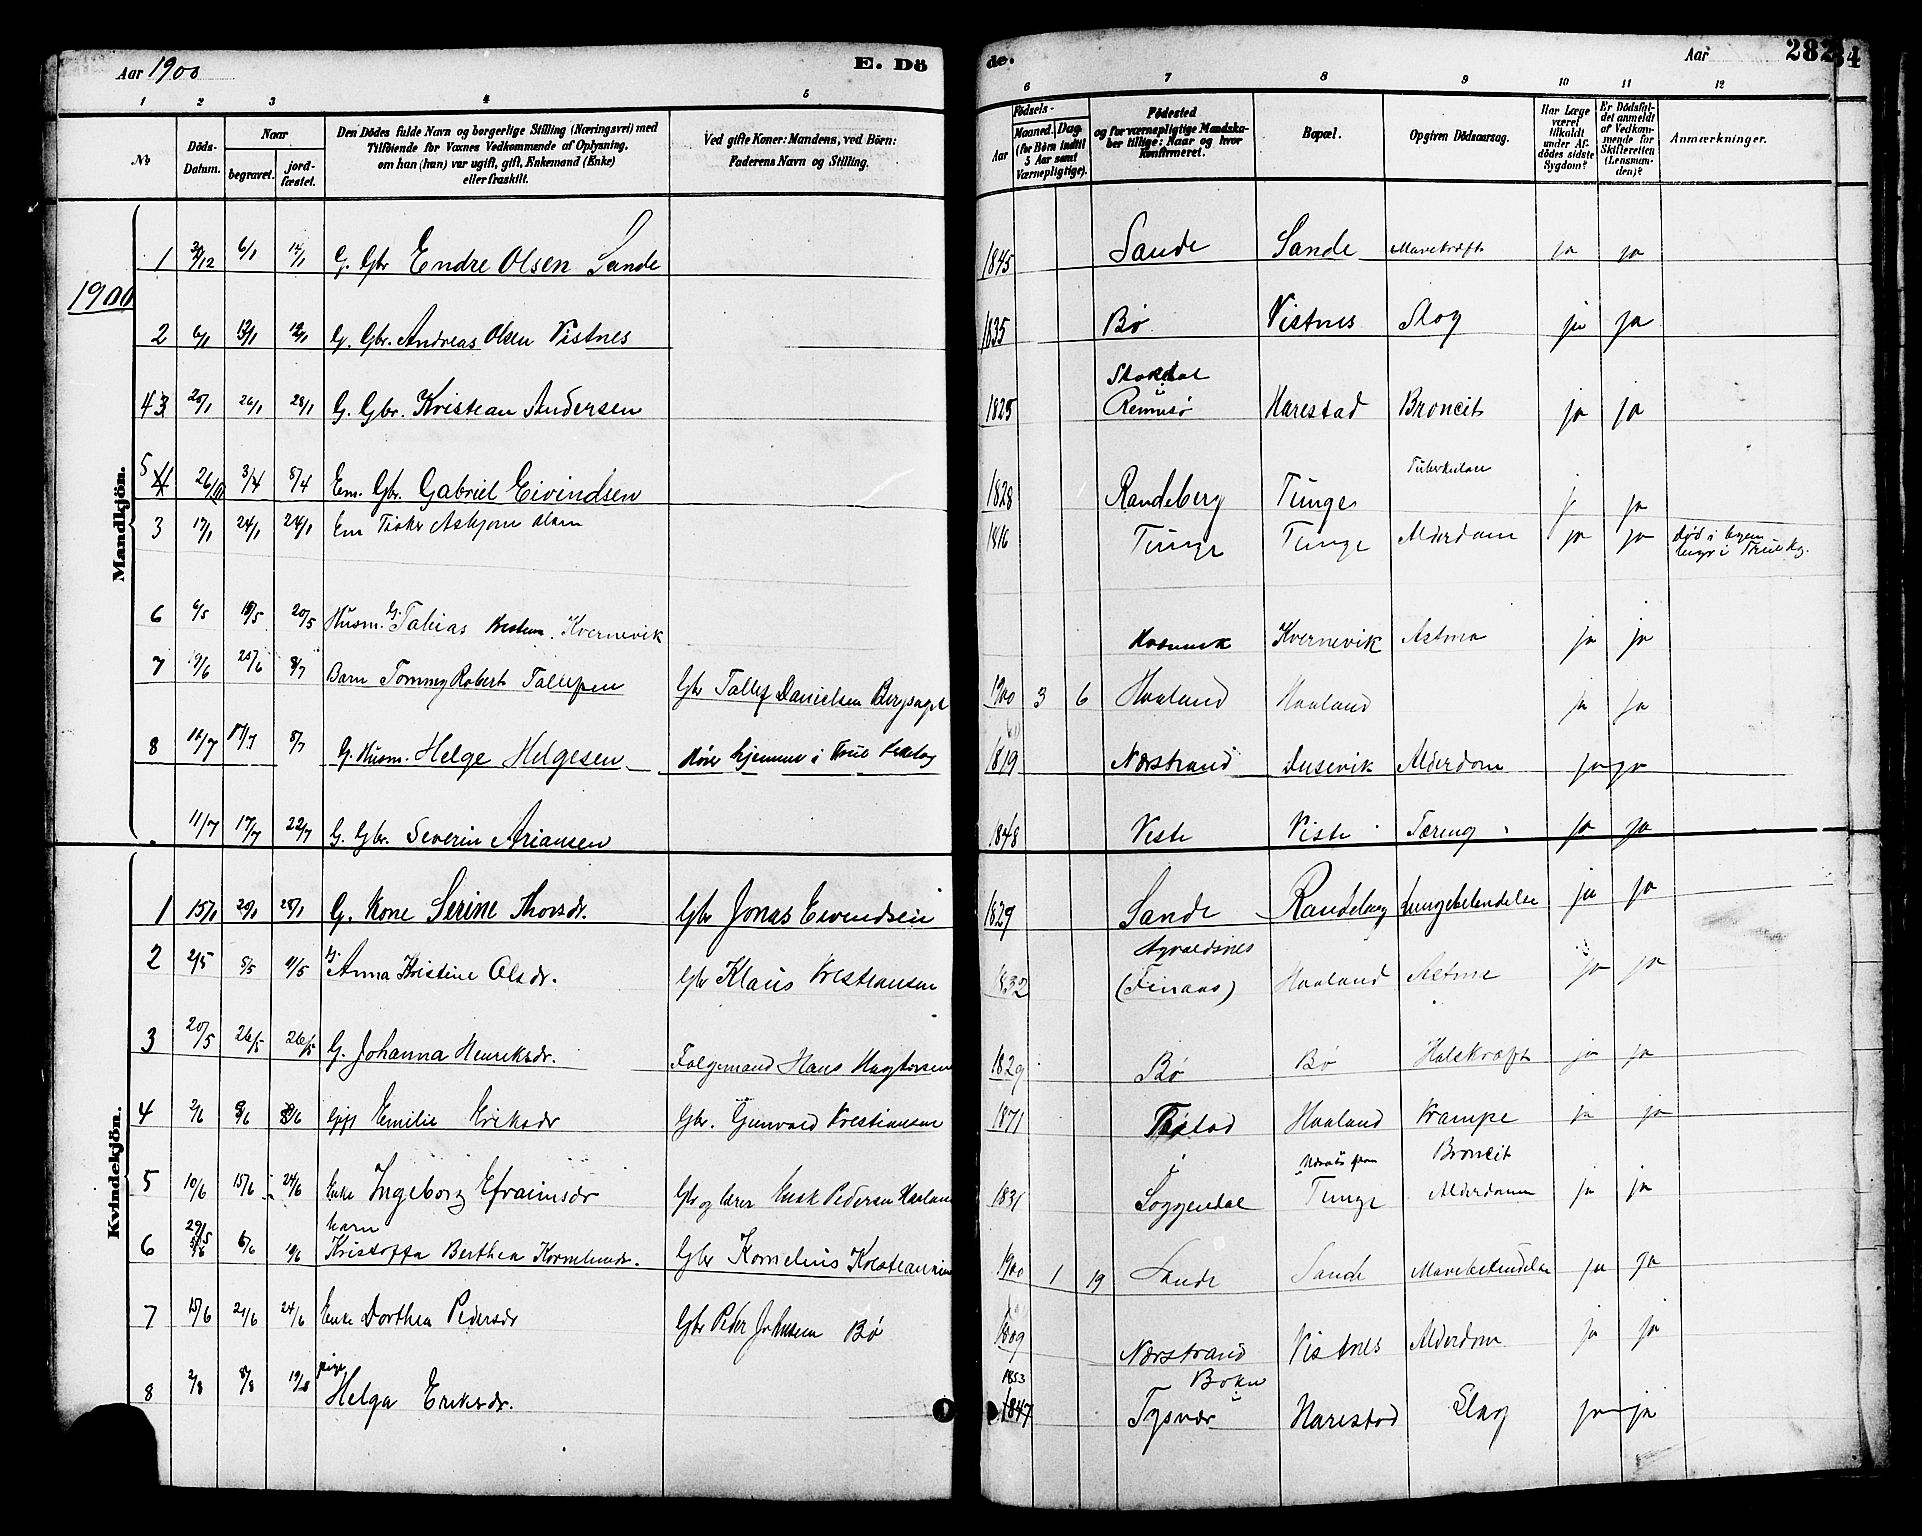 Aar 1900 E. Dö
de. Aar 282 34
1 2 3 4 5
6 7 8 9 10 11 12
No
Döds-
Datum.
Naar
begravet. jord-
fæstet.
Den Dödes fulde Navn og borgerlige Stilling (Næringsvei) med
Tilföiende for Voxnes Vedkommende af Oplysning,
om han (hun) var ugift, gift, Enkemand (Enke)
eller fraskilt.
Ved gifte Koner: Mandens, ved Börn:
Faderens Navn og Stilling.
Födsels-
Aar Maaned. Dag.
(for Börn indtil
5 Aar samt
Værnepligtige).
Födested
og for værnepligtige Mandska-
ber tillige: Naar og hvor
konfirmeret.
Bopæl.
Opgiven Dödsaarsag.
Har Læge
været
tilkaldt
under Af-
dödes sidste
Sygdom?
Er Dödsfal-
det anmeldt
af Vedkom-
mende for
Skifteretten
(Lensman-
den)?
Anmærkninger.
1900
Mandkjön.
1 30/12 6/1 14/1 G. Gbr Endre Olsen Sande 1845 Sande Sande Mavekræft ja ja
2 6/1 13/1 G. Gbr. Andreas Olsen Vistnes 1835 Bø Vistnes Slag ja ja
43 20/1 26/1 28/1 G. Gbr. Kristean Andersen 1825 Rennesø Harestad Broncit ja ja
5 26/III 3/4 8/4 Em. Gbr. Gabriel Eivindsen 1828 Randeberg Tunge Tuberkulose j ja
3 17/1 24/1 24/1 Em Asbjorn Olsen 1816 Tunge Tunge Alderdom ja ja død i byen
6 6/5 20/5 Husm. G. Tobias Kvernevik Kvernevik Astma ja ja
7 19/6 25/6 8/7 Barn Tommy Robert Tallefsen Gbr Tallef Danielsen Bergsagel 1900 3 6 Haaland Haaland ja ja
8 12/7 17/7 8/7 G. Husm. Helge Helgesen hjemme i 1819 Nærstrand Dusevik Alderdom ja ja
11/7 17/7 22/7 G. Gbr. Severin Ariansen 1848 Viste Viste Tæring ja ja
Kvindekjön.
1 15/1 20/1 28/1 G. Kone Serine Thorsdr. Gbr Jonas Eivendsen 1829 Sande Randeberg Lungebetendelse ja ja
2 2/5 8/5 11/5 G. Anna Kristine Olsdr. Gbr Klaus Krestiansen 1832 Avaldsnes (Finaas) Haaland Astma ja ja
3 20/5 26/5 26/5 G. Johanna Henriksdr. Folgemand Hans 1829 Bø Bø Halskræft ja ja
4 2/6 8/6 Gift Emilie Eriksdr Gbr. Gunvald Krestiansen 1871 Haaland Krampe ja ja
5 10/6 15/6 24/6 Enke Ingeborg Efraimsdr Gbr og lærer Enok Pedersen Haaland 1831 Soggendal Tunge Broncit Alderdom ja ja
6 29/5 6/6 10/6 barn Kristoffa Berthea Gbr Kornelius Kresteansen 1900 1 19 Sande Sande Mavebetendelse ja ja
7 15/6 21/6 24/6 Enke Dorthea Pedersdr Gbr Peder Johnsen Bø 1809 Nærstrand Vistnes Alderdom ja ja
8 2/8 8/8 19/8 pige Helga Eriksdr. 1853 1847 Bokn Tysvær Harestad Slag ja ja